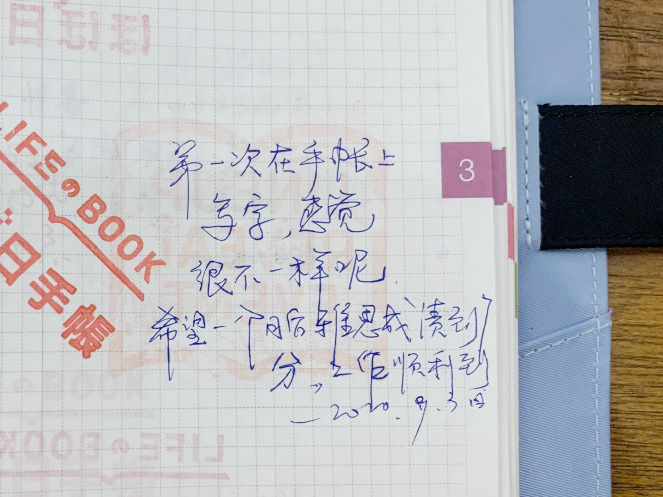 ほぼ日
LIFEのBOOK
ほぼ日手帳
3
第一次在手帐上
写字,感觉
很不一样呢
希望一个月后雅思成绩到7
分,工作顺利到
—2020.9.3日
LIFEのBOOK